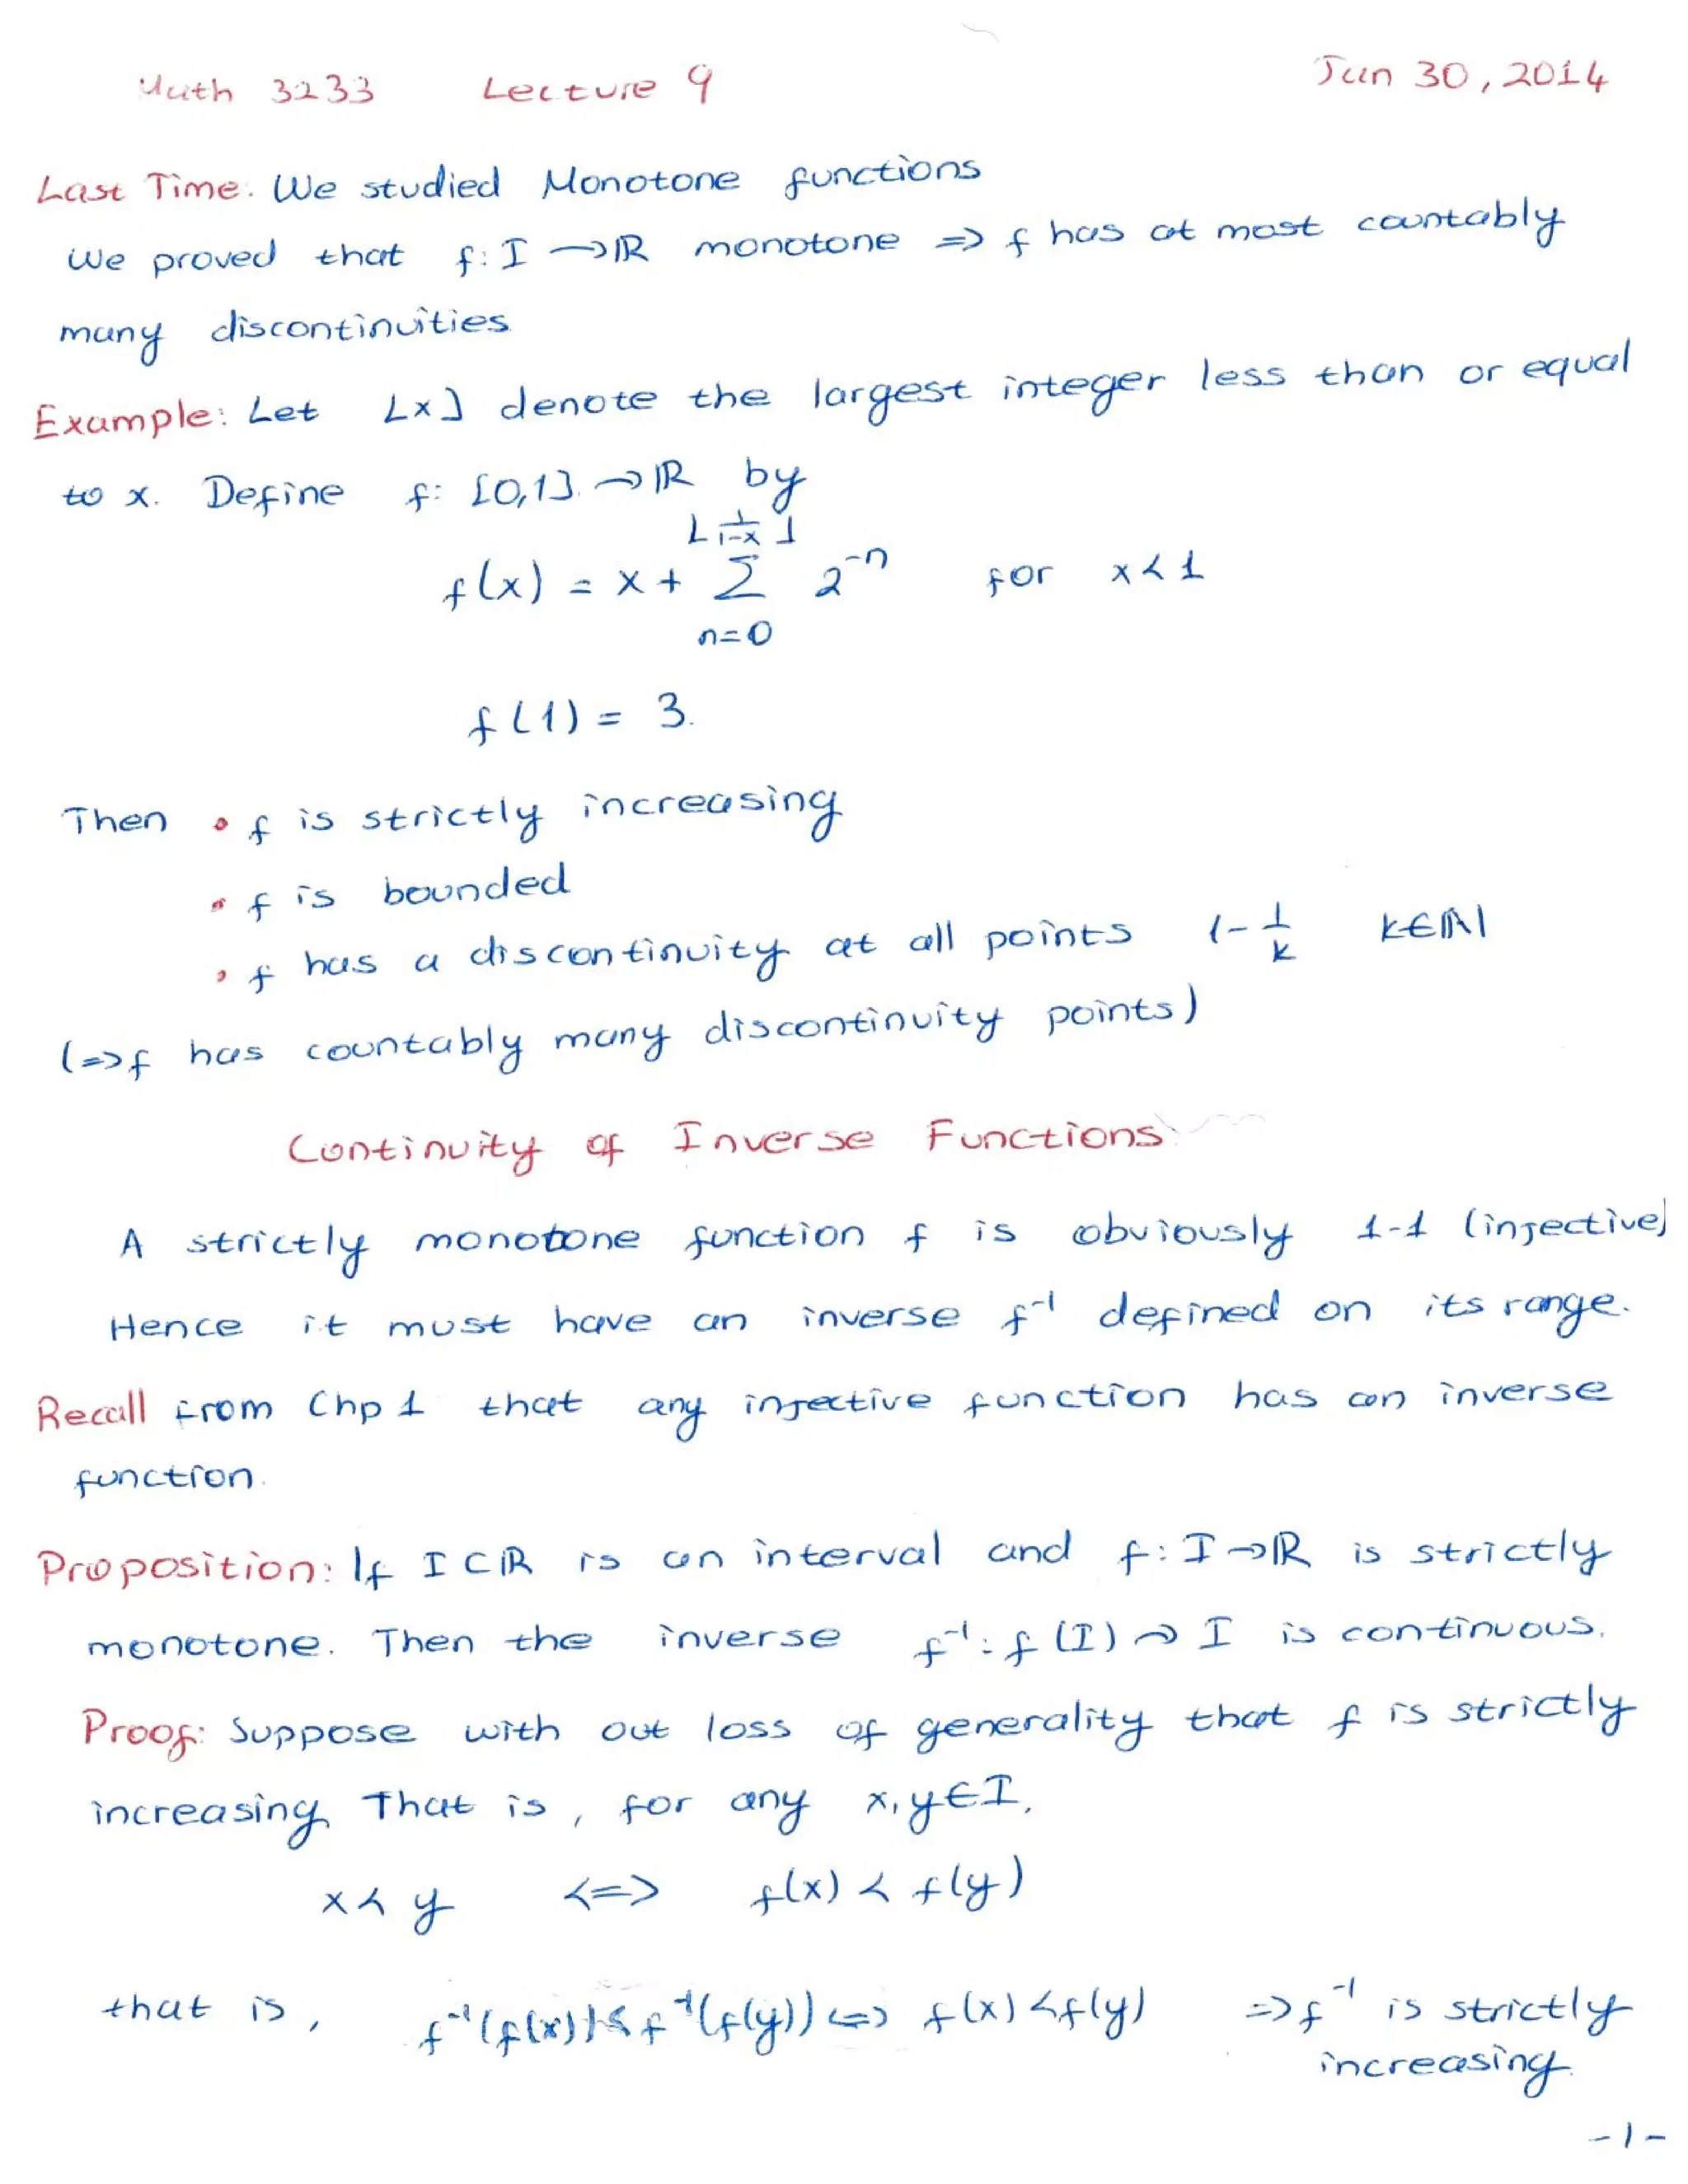 Math 3233 Lecture 9 Jun 30, 2014
Last Time: We studied Monotone functions
We proved that f: I → ℝ monotone ⇒ f has at most countably
many discontinuities
Example: Let ⌊x⌋ denote the largest integer less than or equal
to x. Define f: [0,1] → ℝ by
⌊1/(1-x)⌋
f(x) = x + Σ 2⁻ⁿ for x < 1
n=0
f(1) = 3.
Then • f is strictly increasing
• f is bounded
• f has a discontinuity at all points 1 - 1/k k∈ℕ
(⇒ f has countably many discontinuity points)
Continuity of Inverse Functions
A strictly monotone function f is obviously 1-1 (injective)
Hence it must have an inverse f⁻¹ defined on its range.
Recall from Chp 1 that any injective function has an inverse
function.
Proposition: If I ⊂ ℝ is an interval and f: I → ℝ is strictly
monotone. Then the inverse f⁻¹: f(I) → I is continuous.
Proof: Suppose with out loss of generality that f is strictly
increasing. That is, for any x, y ∈ I,
x < y <=> f(x) < f(y)
that is, f⁻¹(f(x)) < f⁻¹(f(y)) <=> f(x) < f(y) ⇒ f⁻¹ is strictly
increasing.
-1-